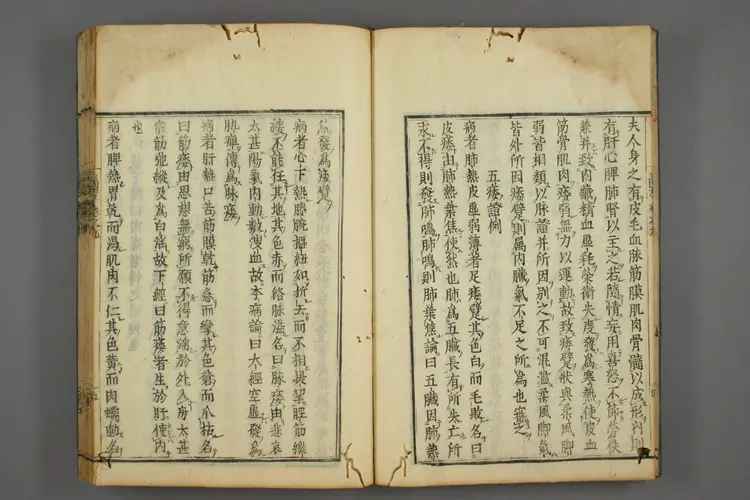 夫人身之有皮毛血脉筋膜肌肉骨髓以成形內則
有肝心脾肺腎以主之若隨情妄用喜怒不節勞佚
兼并致內臟精血虛耗榮衛失度發為寒熱使皮血
筋骨肌肉痿弱無力以運動故致痿躄狀與柔風脚
弱皆相類以脉證并所因別之不可混濫柔風脚氣
皆外所因痿躄則屬內臟氣不足之所為也審之
五痿證例
病者肺熱皮虛弱薄著足痿躄其色白而毛敗名曰
皮痿由肺熱葉焦使然也肺為五臟長有所失亡所
求不得則發肺鳴肺鳴則肺葉焦論曰五臟因肺熱
焦發為痿躄
病者心下熱膝腕樞紐如折去而不相提挈脛筋縱
緩不能任其地其色赤而絡脉溢名曰脉痿由悲哀
太甚陽氣內動數溲血故本病論曰大經空虛發為
肌痺傳為脉痿
病者肝熱口苦筋膜乾筋急而攣其色蒼而爪枯名
曰筋痿由思想無窮所願不得意淫於外入房太甚
宗筋弛縱及為白淫故下經曰筋痿者生於肝使內
也
病者脾熱胃乾而渴肌肉不仁其色黃而肉蠕動名